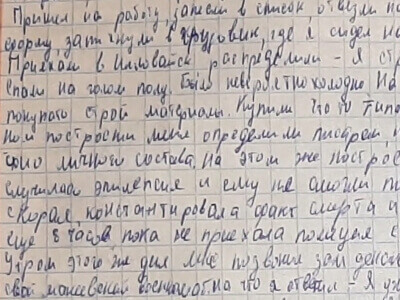 Пришел на работу, занесли в список отдали по
форму, затянули в грузовик, где я сидел на
Приехали в Иловайск, распределили - Я
спали на голом полу. Было невероятно холодно. На
покупать строй материалы. Купили что то типо
ном построении меня определили писарем,
лично состава. На этом же построе
случилась эпилепсия и ему не смогли по
скорая, констатировала факт смерти и
еще 8 часов пока не приехала полиция с
Утром этого же дня мне позвонил зам
свой московский и что я ответил - Я уж